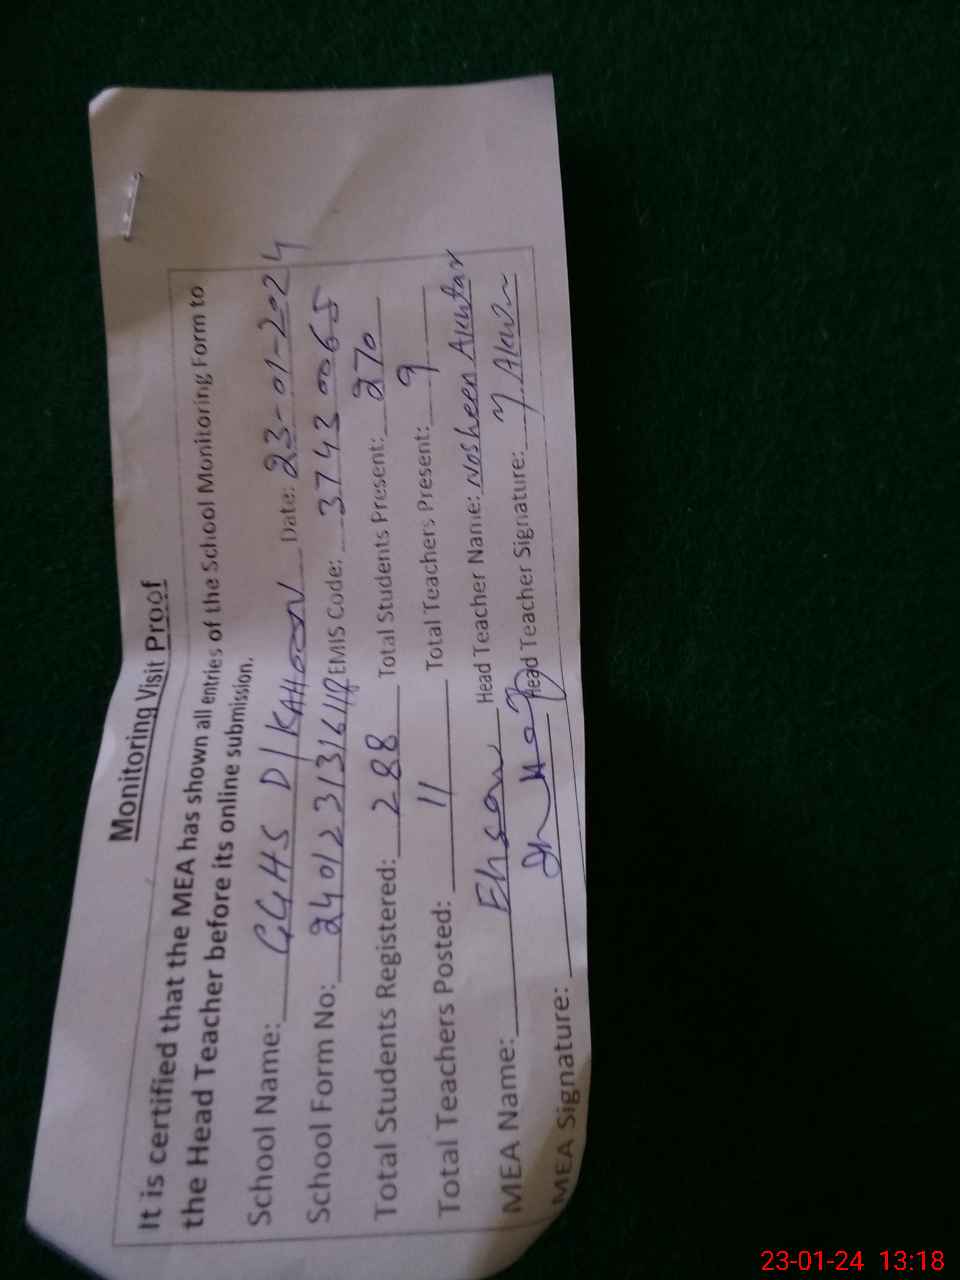 Monitoring Visit Proof
It is certified that the MEA has shown all entries of the School Monitoring Form to
the Head Teacher before its online submission.
School Name: GGHS D/KAHOON Date: 23-01-2024
School Form No: EMIS Code: 37430065
Total Students Registered: 288 Total Students Present: 270
Total Teachers Posted: 11 Total Teachers Present: 9
MEA Name: Ehsan Head Teacher Name: Nosheen Akhtar
MEA Signature: Head Teacher Signature:
23-01-24 13:18